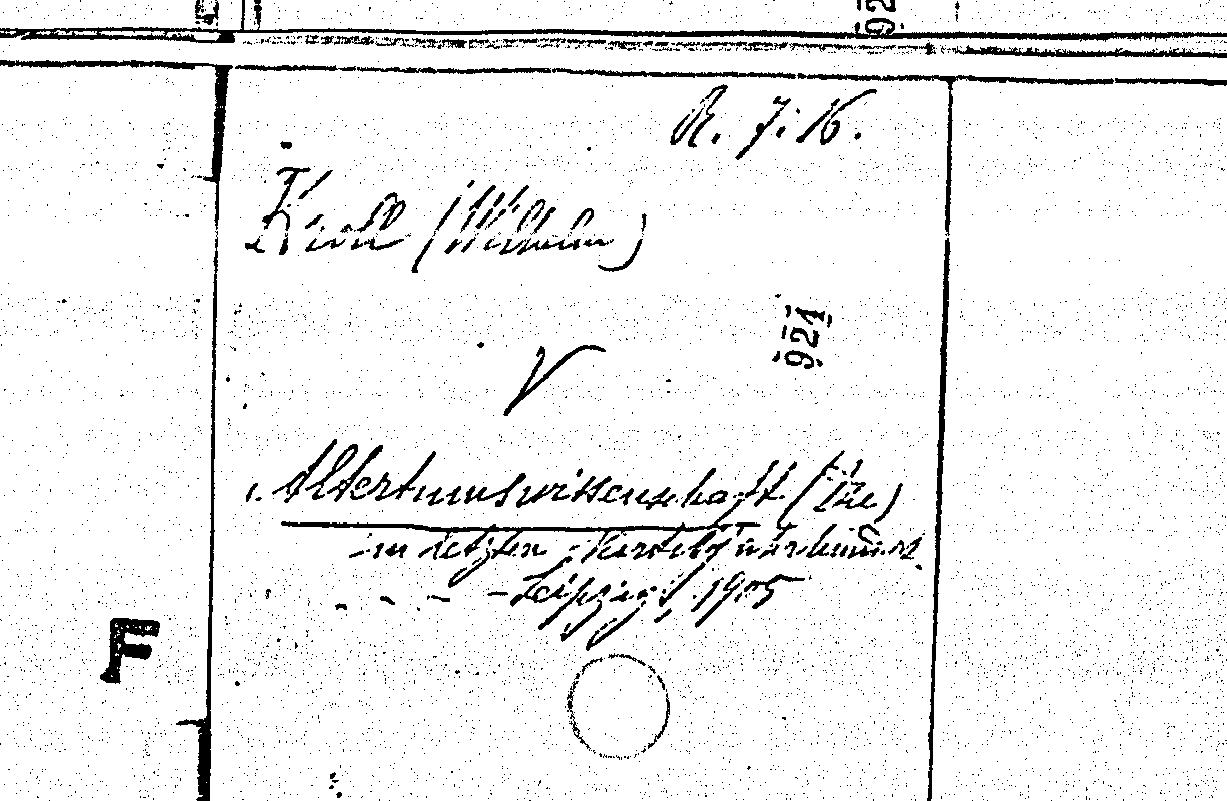 R. 7.16.
Kroll (Wilhelm)
921
V
Altertumswissenschaft (Die)
im letzten Vierteljahrhundert
Leipzig, 1905
F